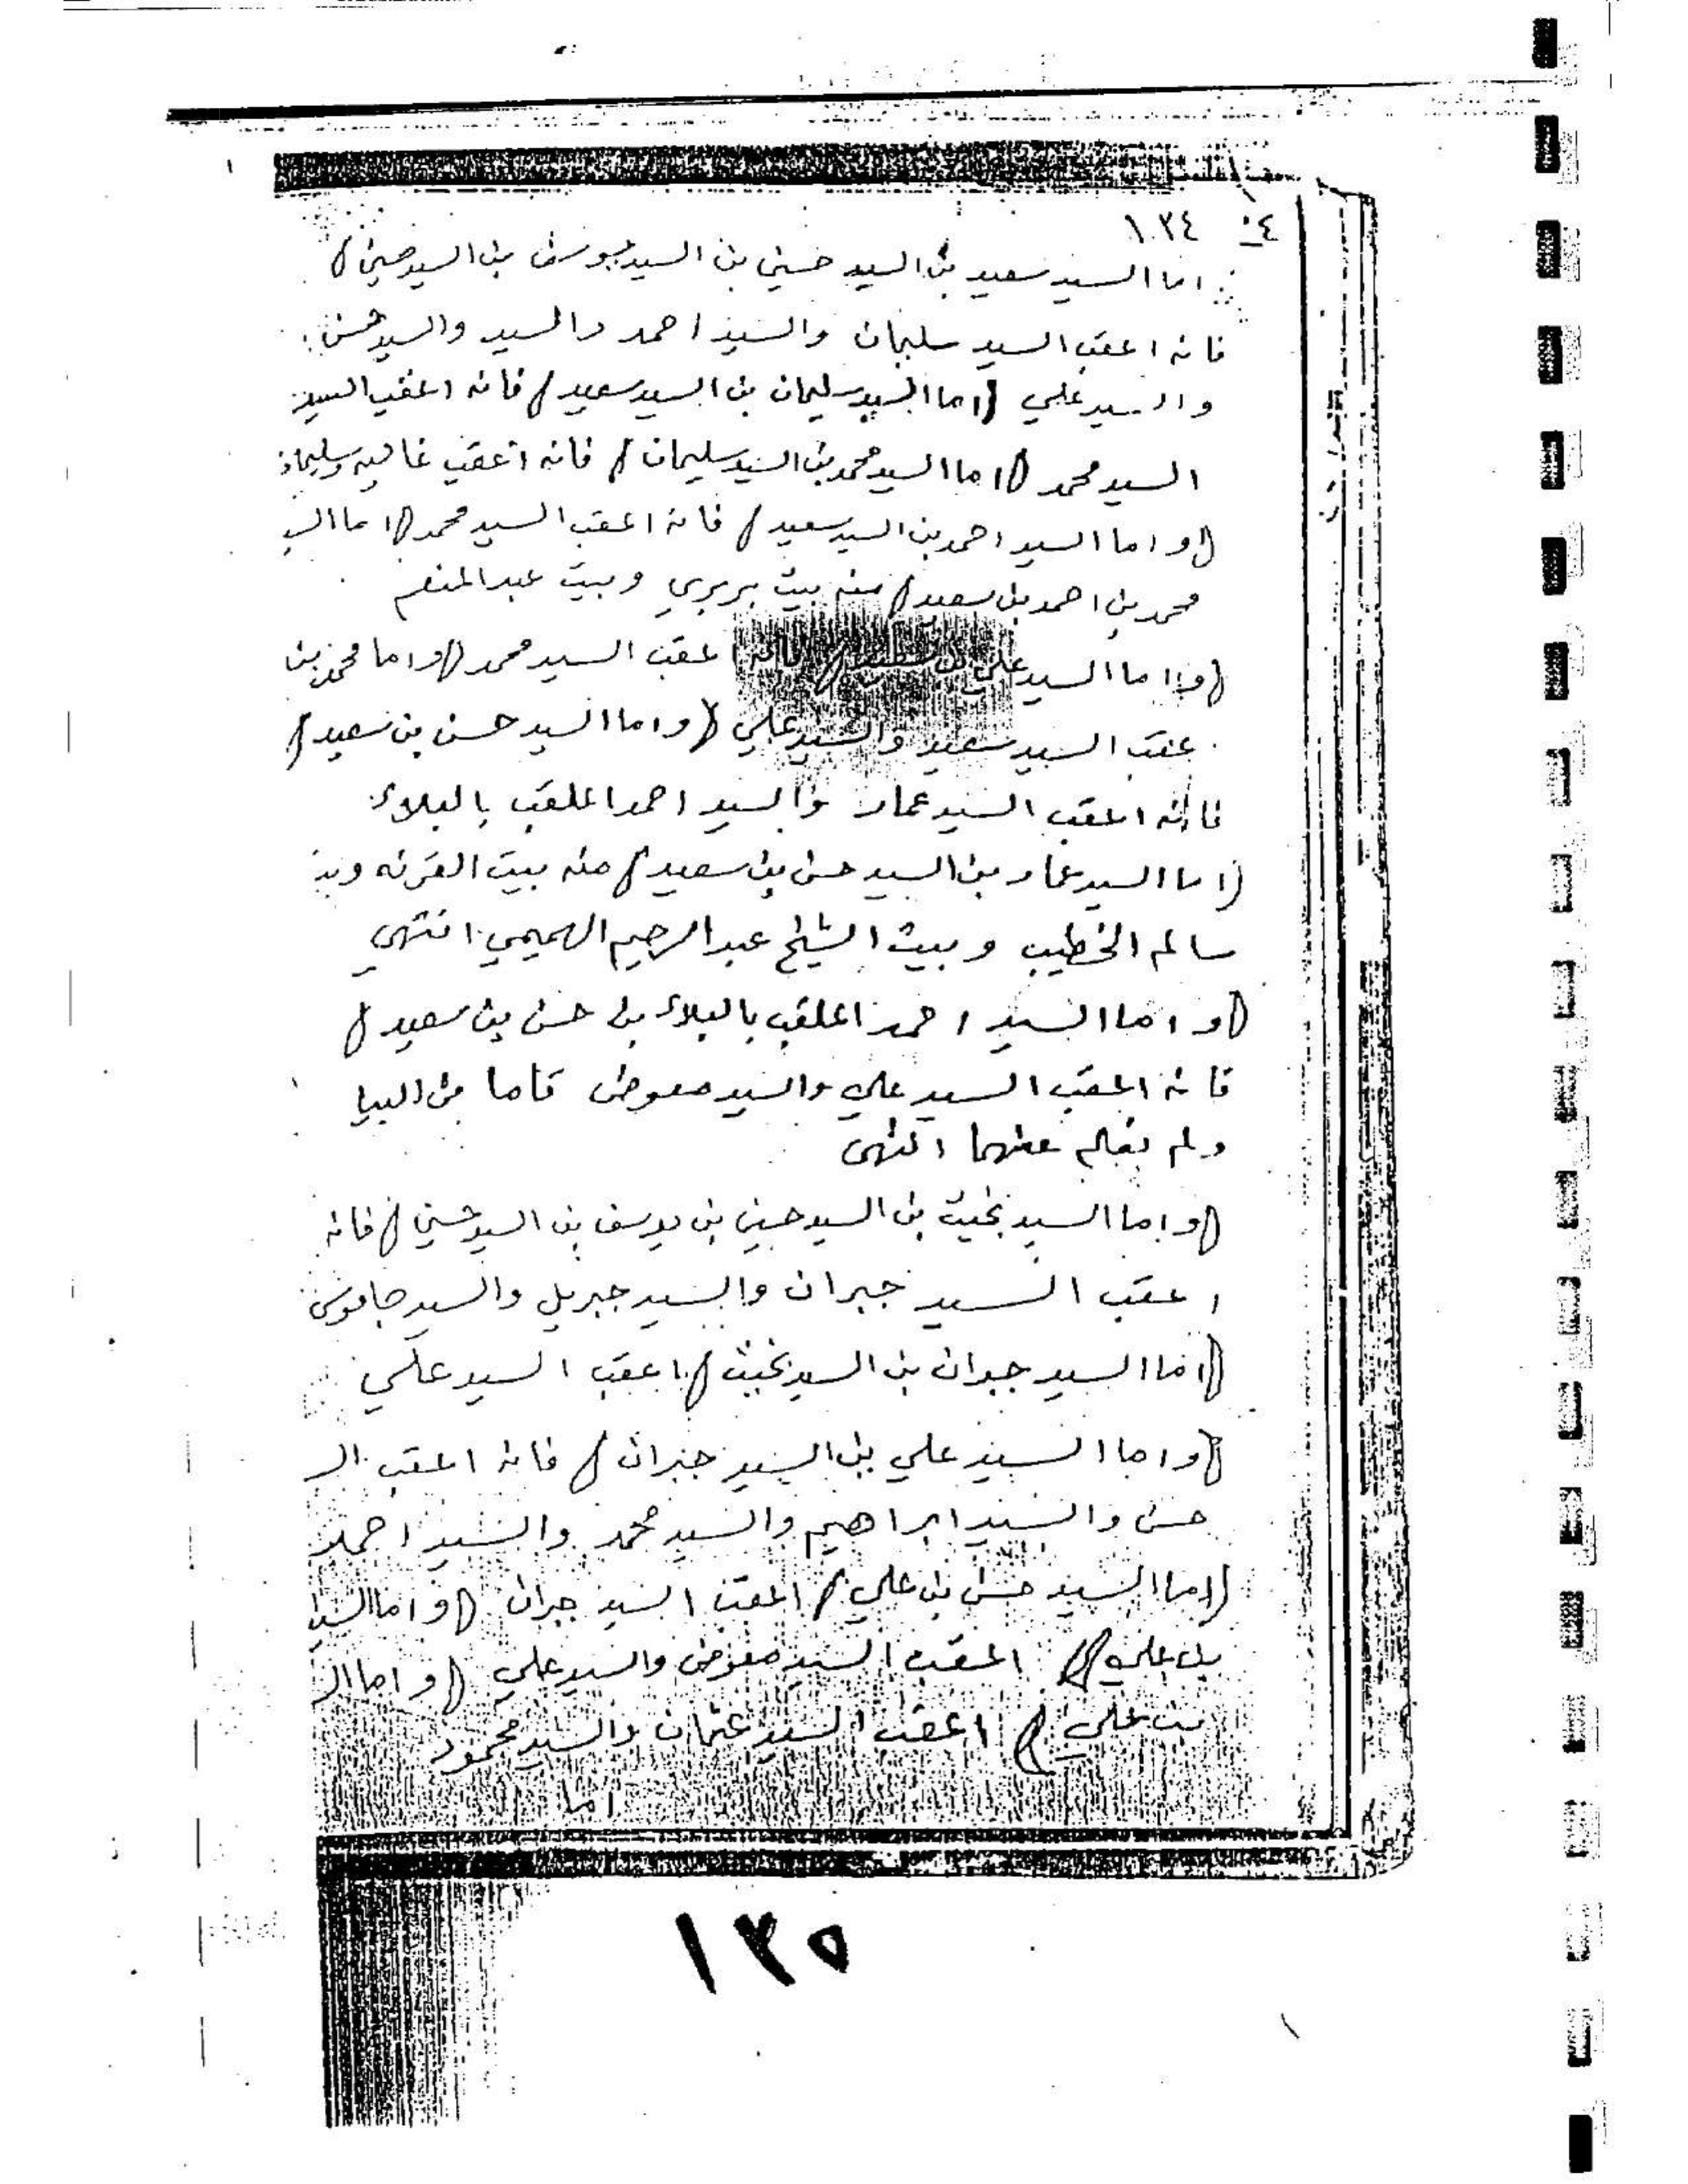 ١٠٣٤
اما السيد سعيد بن السيد حسين بن السيد يوسف بن السيد حسين
فانه اعقب السيد سليمان والسيد احمد والسيد والسيد حسن
والسيد علي (اما السيد سليمان بن السيد سعيد) فانه اعقب السيد
السيد محمد (اما السيد محمد بن السيد سليمان) فانه اعقب غاليه وسليمان
(واما السيد احمد بن السيد سعيد) فانه اعقب السيد محمد (اما السيد
محمد بن احمد بن سعيد) منه بيت بربري وبيت عبد المنعم
(واما السيد علي بن فانه اعقب السيد محمد (واما محمد بن
عقب السيد سعيد والسيد علي (واما السيد حسن بن سعيد)
فانه اعقب السيد عمار والسيد احمد الملقب بالبلاء
(اما السيد عمار بن السيد حسن بن سعيد) منه بيت القرنه
سالم الخطيب وبيت الشيخ عبد الرحيم الهميمي انتهي
(واما السيد احمد الملقب بالبلاء بن حسن بن سعيد)
فانه اعقب السيد علي والسيد معوض
ولم يعلم عنهما انتهى
(واما السيد بخيت بن السيد حسين بن يوسف بن السيد حسين) فانه
اعقب السيد جبران والسيد جبريل والسيد جاموس
(اما السيد جبران بن السيد بخيت) اعقب السيد علي
(واما السيد علي بن السيد جبران) فانه اعقب الـ
حسن والسيد ابراهيم والسيد محمد والسيد احمد
(اما السيد حسن بن علي) اعقب السيد جبران (واما السيد
بن علي) اعقب السيد معوض والسيد علي (واما الـ
بن علي) اعقب السيد عثمان والسيد محمود
اما
١٣٥